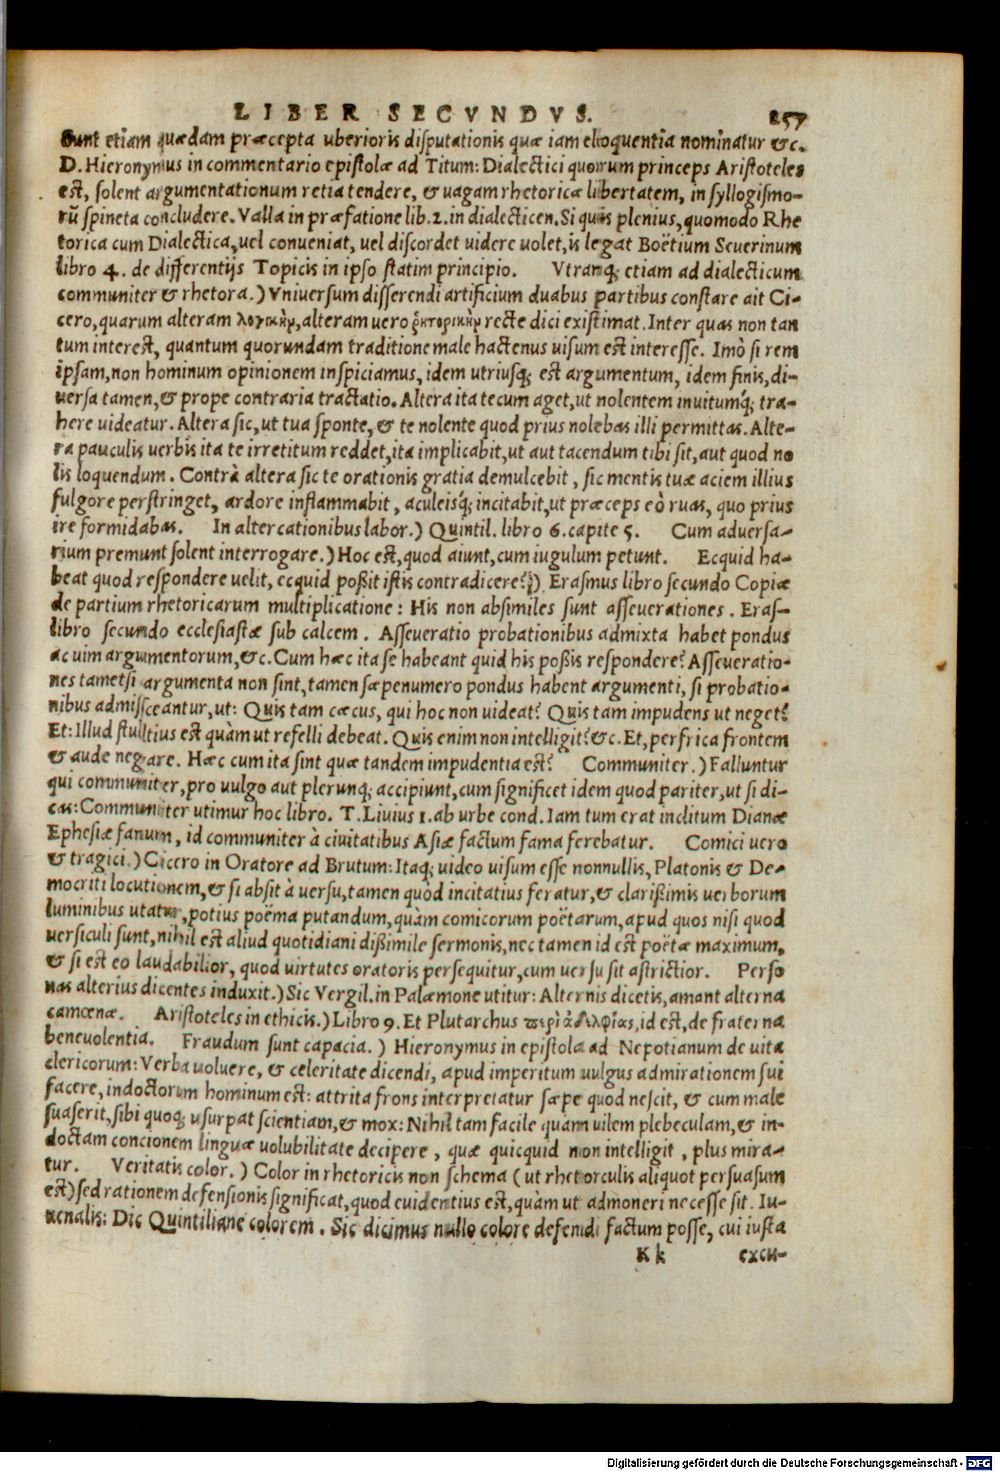 LIBER SECVNDVS. 257
Sunt etiam quædam præcepta uberioris disputationis quæ iam eloquentia nominatur &c.
D. Hieronymus in commentario epistolæ ad Titum: Dialectici quorum princeps Aristoteles
est, solent argumentationum retia tendere, & uagam rhetoricæ libertatem, in syllogismo-
rū spineta concludere. Valla in præfatione lib. 2. in dialecticen. Si quis plenius, quomodo Rhe
torica cum Dialectica, uel conueniat, uel discordet uidere uolet, is legat Boëtium Seuerinum
libro 4. de differentijs Topicis in ipso statim principio. Vtranq; etiam ad dialecticum
communiter & rhetora.) Vniuersum disserendi artificium duabus partibus constare ait Ci-
cero, quarum alteram λογικὴν, alteram uero ῥητορικὴν recte dici existimat. Inter quas non tan
tum interest, quantum quorundam traditione male hactenus uisum est interesse. Imò si rem
ipsam, non hominum opinionem inspiciamus, idem utriusq; est argumentum, idem finis, di-
uersa tamen, & prope contraria tractatio. Altera ita tecum aget, ut nolentem inuitumq́; tra-
here uideatur. Altera sic, ut tua sponte, & te nolente quod prius nolebas illi permittas. Alte-
ra pauculis uerbis ita te irretitum reddet, ita implicabit, ut aut tacendum tibi sit, aut quod no
lis loquendum. Contrà altera sic te orationis gratia demulcebit, sic mentis tuæ aciem illius
fulgore perstringet, ardore inflammabit, aculeisq́; incitabit, ut præceps eò ruas, quo prius
ire formidabas. In altercationibus labor.) Quintil. libro 6. capite 5. Cum aduersa-
rium premunt solent interrogare.) Hoc est, quod aiunt, cum iugulum petunt. Ecquid ha-
beat quod respondere uelit, ecquid poßit istis contradicere?) Erasmus libro secundo Copiæ
de partium rhetoricarum multiplicatione: His non absimiles sunt asseuerationes. Eras-
libro secundo ecclesiastæ sub calcem. Asseueratio probationibus admixta habet pondus
ac uim argumentorum, &c. Cum hæc ita se habeant quid his poßis respondere? Asseueratio-
nes tametsi argumenta non sint, tamen sæpenumero pondus habent argumenti, si probatio-
nibus admisceantur, ut: Quis tam cæcus, qui hoc non uideat? Quis tam impudens ut neget?
Et: Illud stultius est quàm ut refelli debeat. Quis enim non intelligit? &c. Et, perfrica frontem
& aude negare. Hæc cum ita sint quæ tandem impudentia est? Communiter.) Falluntur
qui communiter, pro uulgo aut plerunq; accipiunt, cum significet idem quod pariter, ut si di-
cas: Communiter utimur hoc libro. T. Liuius 1. ab urbe cond. Iam tum erat inclitum Dianæ
Ephesiæ fanum, id communiter à ciuitatibus Asiæ factum fama ferebatur. Comici uero
& tragici.) Cicero in Oratore ad Brutum: Itaq; uideo uisum esse nonnullis, Platonis & De-
mocriti locutionem, & si absit à uersu, tamen quòd incitatius feratur, & clarißimis uerborum
luminibus utatur, potius poëma putandum, quàm comicorum poëtarum, apud quos nisi quod
uersiculi sunt, nihil est aliud quotidiani dißimile sermonis, nec tamen id est poëtæ maximum,
& si est eo laudabilior, quod uirtutes oratoris persequitur, cum uersu sit astrictior. Perso
nas alterius dicentes induxit.) Sic Vergil. in Palæmone utitur: Alternis dicetis, amant alterna
camœnæ. Aristoteles in ethicis.) Libro 9. Et Plutarchus περὶ ἀδελφίας, id est, de fraterna
beneuolentia. Fraudum sunt capacia.) Hieronymus in epistola ad Nepotianum de uita
clericorum: Verba uoluere, & celeritate dicendi, apud imperitum uulgus admirationem sui
facere, indoctorum hominum est: attrita frons interpretatur sæpe quod nescit, & cum male
suaserit, sibi quoq; usurpat scientiam, & mox: Nihil tam facile quàm uilem plebeculam, & in-
doctam concionem linguæ uolubilitate decipere, quæ quicquid non intelligit, plus mira-
tur. Veritatis color.) Color in rhetoricis non schema (ut rhetorculis aliquot persuasum
est) sed rationem defensionis significat, quod euidentius est, quàm ut admoneri necesse sit. Iu-
uenalis: Dic Quintiliane colorem. Sic dicimus nullo colore defendi factum posse, cui iusta
K k excu-
Digitalisierung gefördert durch die Deutsche Forschungsgemeinschaft - DFG